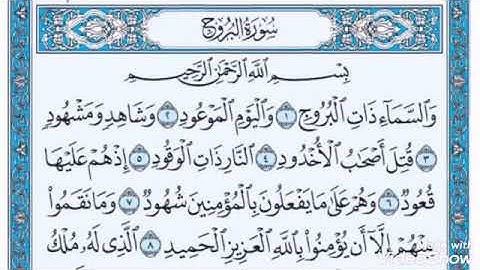 سُورَةُ البُرُوجِ
بِسْمِ ٱللَّهِ ٱلرَّحْمَٰنِ ٱلرَّحِيمِ
وَٱلسَّمَآءِ ذَاتِ ٱلْبُرُوجِ ١ وَٱلْيَوْمِ ٱلْمَوْعُودِ ٢ وَشَاهِدٍ وَمَشْهُودٍ
٣ قُتِلَ أَصْحَٰبُ ٱلْأُخْدُودِ ٤ ٱلنَّارِ ذَاتِ ٱلْوَقُودِ ٥ إِذْ هُمْ عَلَيْهَا
قُعُودٌ ٦ وَهُمْ عَلَىٰ مَا يَفْعَلُونَ بِٱلْمُؤْمِنِينَ شُهُودٌ ٧ وَمَا نَقَمُوا۟
مِنْهُمْ إِلَّآ أَن يُؤْمِنُوا۟ بِٱللَّهِ ٱلْعَزِيزِ ٱلْحَمِيدِ ٨ ٱلَّذِى لَهُۥ مُلْكُ